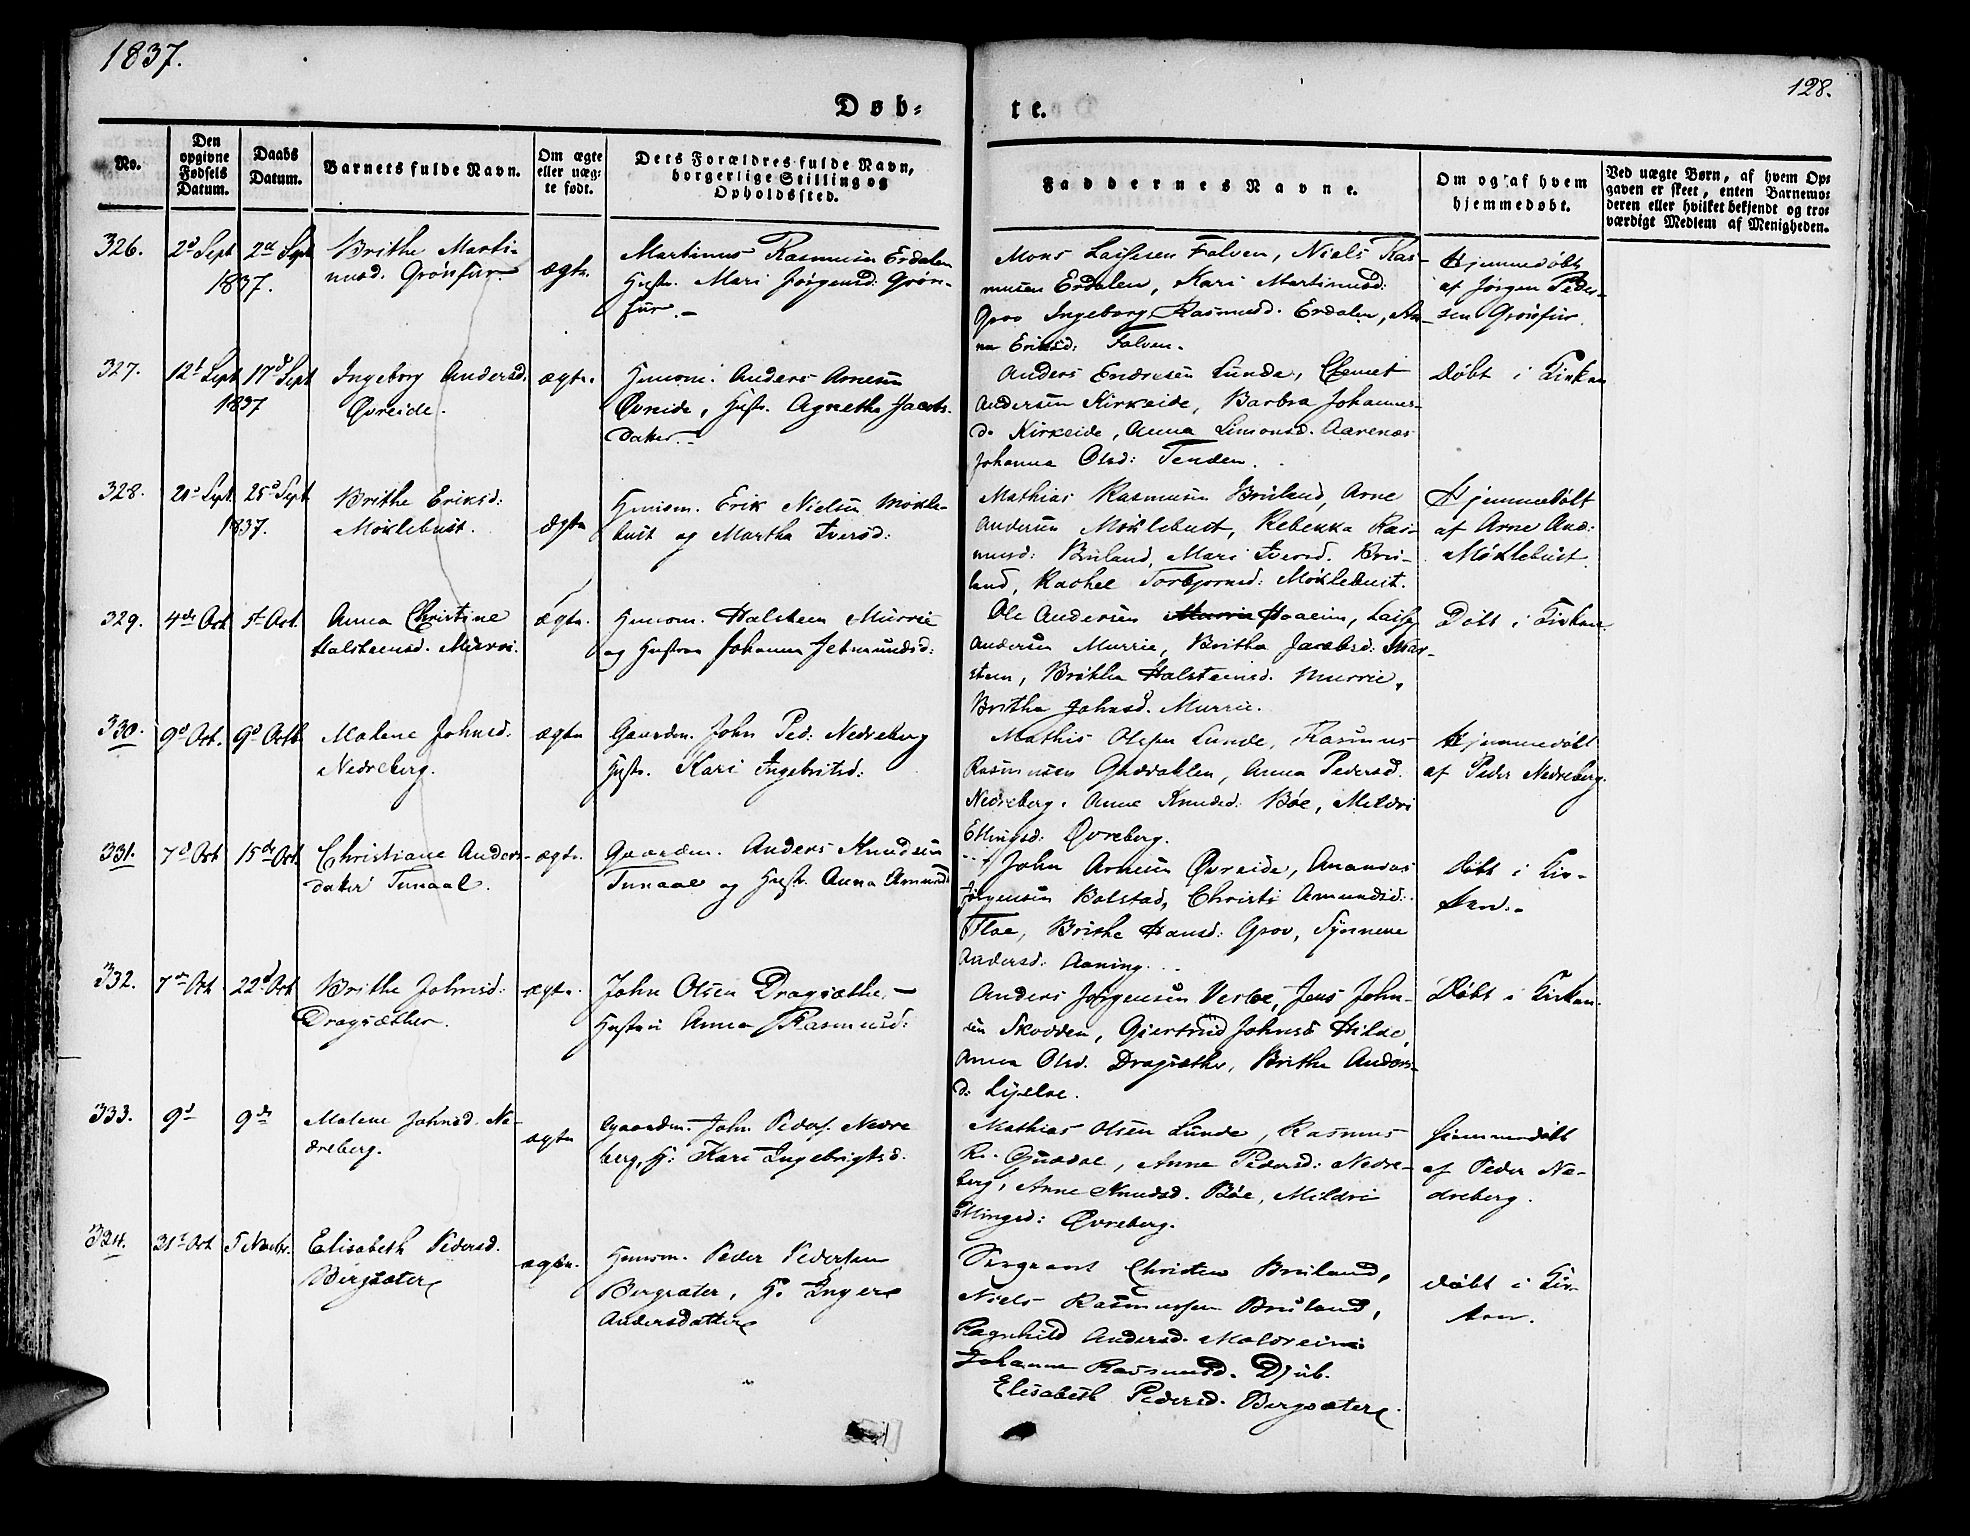 1837.
128.
Døb-
te.
No.
Den
opgivne
Fødsels
Datum.
Daabs
Datum.
Barnets fulde Navn.
Om ægte
eller uæg-
te født.
Dets Forældres fulde Navn,
borgerlige Stilling og
Opholdssted.
Faddernes Navne.
Om og af hvem
hjemmedøbt.
Ved uægte Børn, af hvem Op-
gaven er skeet, enten Barnemo-
deren eller hvilket bekjendt og tro-
værdigt Medlem af Menigheden.
326.
2d Sept
2d Sept
1837.
Brithe Marti-
nusd. Grönfur
ægte.
Martinus Rasmusen Erdalen
Hustr. Mari Jørgensd: Grön-
fur.-
Mons Lassesen Folven, Niels Ras-
musen Erdalen, Kari Martinusd:
Grov Ingeborg Rasmusd. Erdalen, An-
na Eriksd: Folven.
Hjemmedøbt
af Jørgen Peder-
sen Grönfur.
327.
12t Sept
17d Sept
1837
Ingeborg Andersd.
Øvreide.
ægte.
Huusm. Anders Arnesen
Øvreide, Hustr. Agnethe Jacobs-
datter.-
Anders Endresen Lunde, Clemet
Andersen Kirkeide, Barbra Johannes-
d. Kirkeide, Anna Simonsd. Aarenæs
Johanna Olsd: Tenden.
Døbt i Kirken
328.
21d Sept
25d Sept
1837.
Brithe Eriksd:
Møklebust.
ægte
Huusm. Erik Nielsen Møkle-
bust og Martha Iversd:
Mathias Rasmusen Bruland, Arne
Andersen Møklebust, Rebekka Ras-
musd: Bruland, Mari Iversd. Bru-
land, Rachel Torbjørnsd: Møklebust.
Hjemmedøbt
af Arne And:
Møklebust.
329.
4de Oct
5t Oct.
Anna Christine
Halsteensd. Murri.
ægte.
Huusm. Halsteen Murrie
og Hustrue Johanna Jetmundsd:
Ole Andersen Murrie Haaeim, Lasse
Andersen Murrie, Britha Jacobsd: Mar-
steen, Brithe Halsteinsd. Murrie,
Britha Johnsd. Murrie.
Døbt i Kirken
330.
9d Oct.
9d Octb.
Malene Johnsd.
Nedreberg.
ægte
Gaardm. John Ped: Nedreberg
Hustr. Kari Ingebritsd:
Mathis Olsen Lunde, Rasmus
Rasmusen Guddahlen, Anna Pedersd.
Nedreberg. Anne Knudsd: Bøe, Mildri
Ellingsd: Øvreberg.
Hjemmedøbt
af Peder Nedreberg.
331.
7d Oct
15de Oct.
Christiane Anders-
datter Tunaal.
ægte.
Gaardm. Anders Knudsen
Tunaal og Hustr. Anna Amunds
John Arnesen Øvreide, Ananias
Jørgensen Bolstad, Christi Amundsd:
Floe, Brithe Hansd: Grov, Synneve
Andersd: Aaning.
døbt i Kir-
ken.
332.
7de Oct
22d Oct
Brithe Johnsd:
Dragsæther.
ægte.
John Olsen Dragsæthe.-
Hustru Anna Rasmusd:
Anders Jørgensen Vesloe, Jens John-
sen Skodden, Gjertrud Johnsd Hilde,
Anna Olsd. Dragsæther, Brithe Anders-
d: Ljeloe.
Døbt i Kirken.
333.
9d
9de
Malene Johnsd. Ne-
dreberg.
ægte
Gaardm. John Peders. Nedre
berg, H: Kari Ingebrigtsd.
Mathias Olsen Lunde, Rasmus
R. Guddal, Anne Pedersd: Nedre-
berg, Anne Knudsd. Bøe, Mildri
Ellingsd: Øvreberg.
hjemmedøbt
af Peder Ne-
dreberg.
324.
31t Oct
5 Novbr.
Elisabeth Pedersd.
Bergsæter
ægte.
Huusm. Peder Pedersen
Bergsæter, H. Inger
Andersdatter
Sergeant Christen Bruland,
Niels Rasmussen Bruland,
Ragnhild Andersd. Moldreim.
Johanne Rasmusd. Djub.
Elisabeth Pedersd. Bergsæter.
døbt i Kir-
ken.